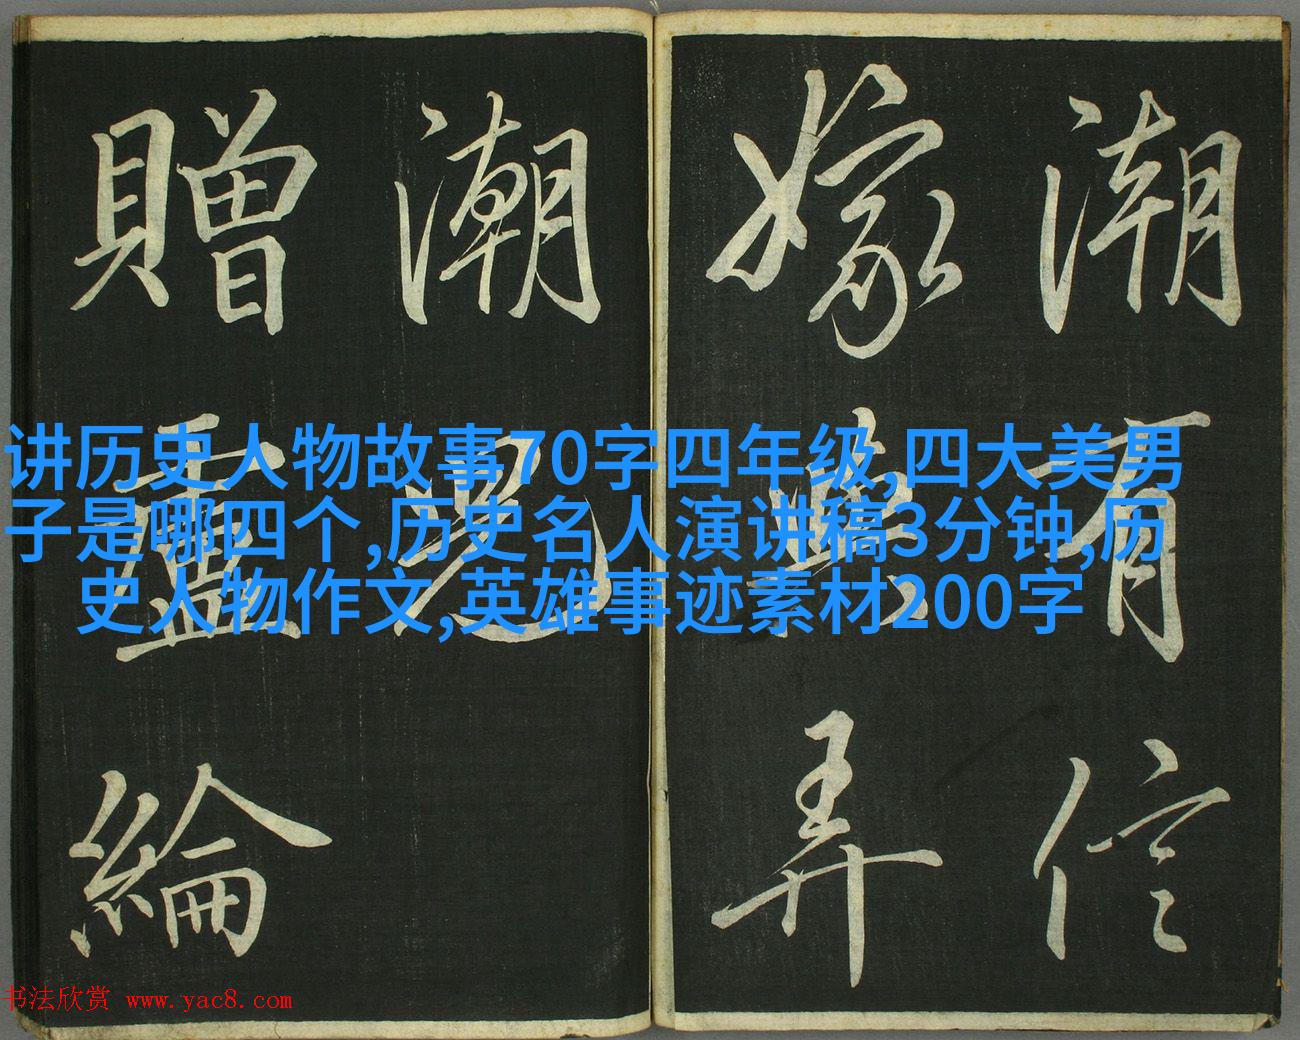 潮有信
嫁與弄
潮兒
贈靈綸
讲历史人物故事70字四年级,四大美男
子是哪四个,历史名人演讲稿3分钟,历
史人物作文,英雄事迹素材200字
书法欣赏 www.yac8.com